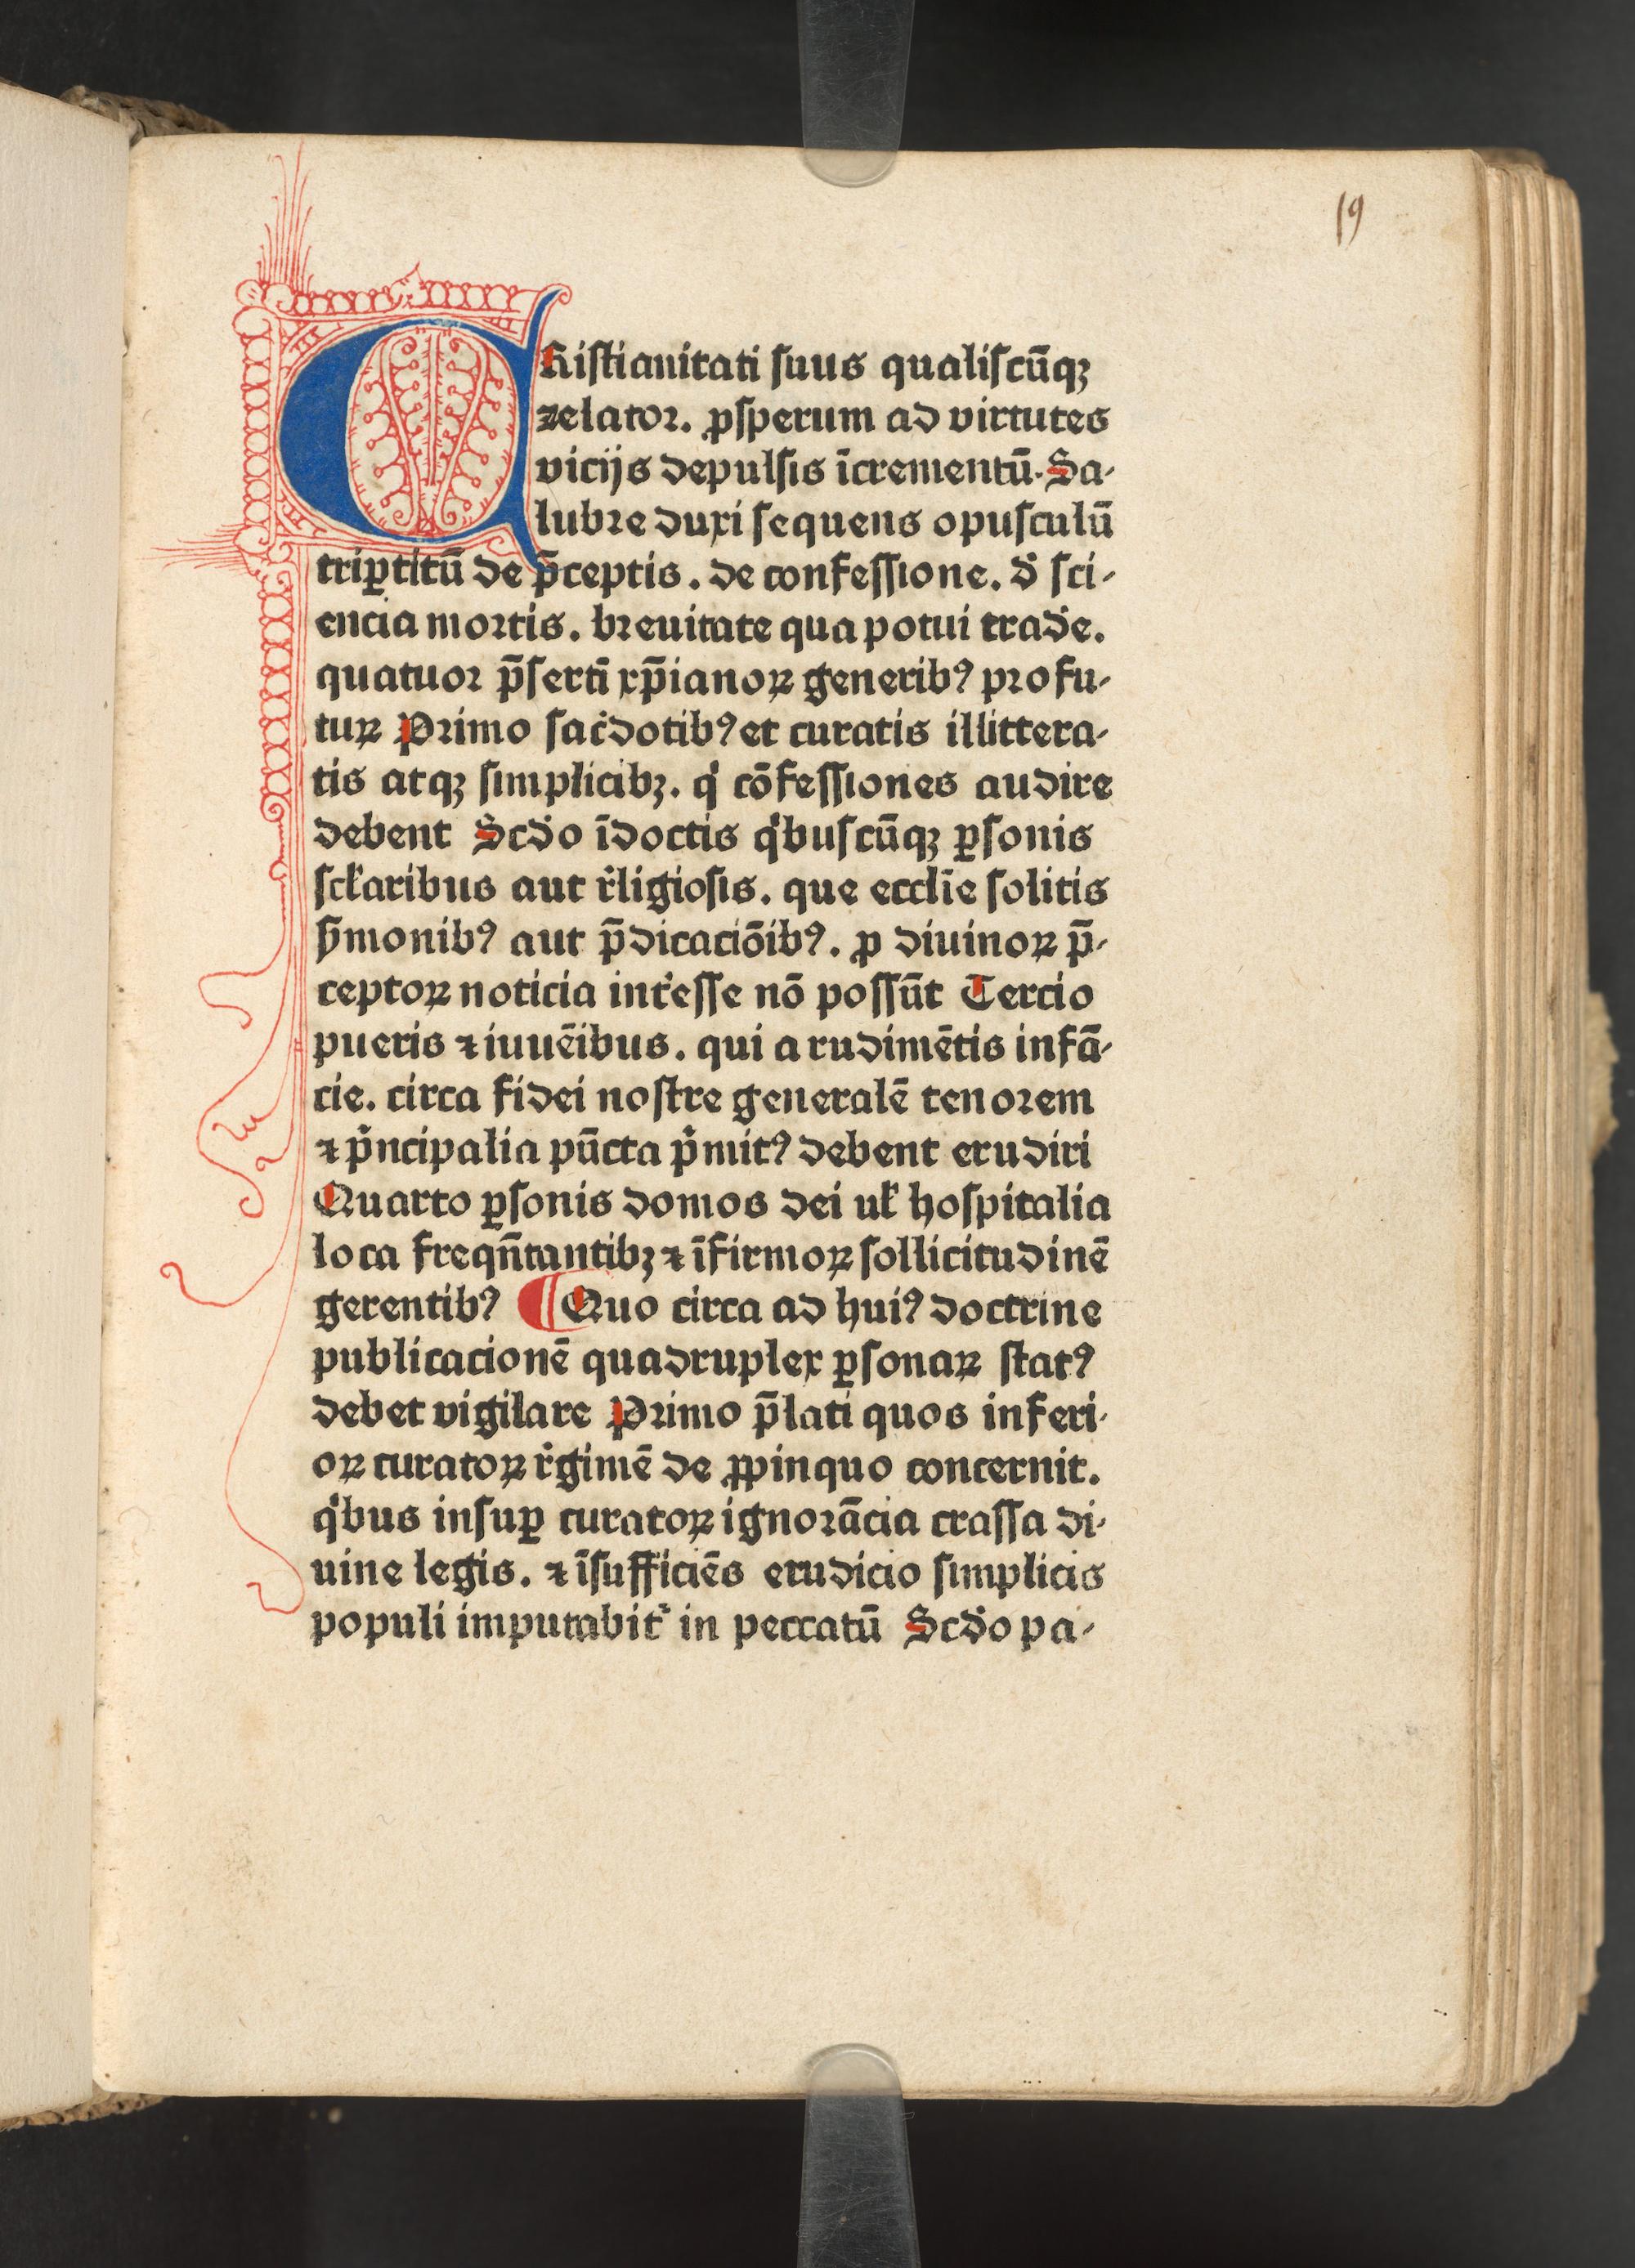 19
CHistianitati suus qualiscūqꝫ
zelator. ꝓsperum ad virtutes
vicijs depulsis īcrementū. Sa-
lubre duxi sequens opusculū
triꝑtitū de p̄ceptis. de confessione. d̕ sci-
encia mortis. breuitate qua potui trad̕e.
quatuor p̄sertī xp̄ianoꝝ generibꝰ profu-
tuꝝ Primo sac̕dotibꝰ et curatis illittera-
tis atqꝫ simplicibꝫ. qͥ cōfessiones audire
debent Scd̕o īdoctis qͥbuscūqꝫ ꝑsonis
scƚaribus aut r̕ligiosis. que eccƚīe solitis
s̕monibꝰ aut p̄dicaciōibꝰ. ꝓ diuinoꝝ p̄-
ceptoꝝ noticia int̕esse nō possūt Tercio
pueris ⁊ iuuēibus. qui a rudimētis infā-
cie. circa fidei nostre generalē tenorem
⁊ pͥncipalia pūcta pͥmitꝰ debent erudiri
Quarto ꝑsonis domos dei uƚ hospitalia
loca freqn̄tantibꝫ ⁊ īfirmoꝝ sollicitudinē
gerentibꝰ ¶ Quo circa ad huiꝰ doctrine
publicacionē quadruplex ꝑsonaꝝ statꝰ
debet vigilare Primo p̄lati quos inferi-
oꝝ curatoꝝ r̕gimē de ꝓpinquo concernit.
qͥbus insuꝑ curatoꝝ ignorācia crassa di-
uine legis. ⁊ īsufficiēs erudicio simplicis
populi imputabit᷑ in peccatū Scd̕o pa-